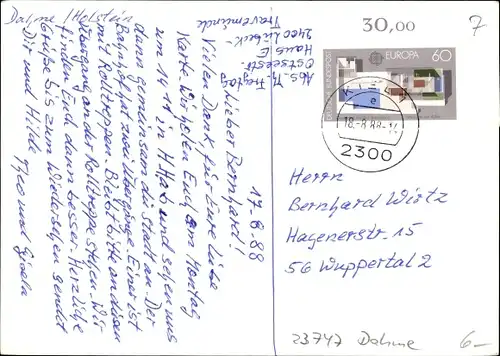 Dahme / Holstein
Abs. Th. Freytag
Ostseestr.
Haus E
2400 Lübeck-
Travemünde
17-8-88
Lieber Bernhard!
Vielen Dank, für Eure liebe
Karte. Wir holen Euch am Montag
um 14 in H. ab und sehen uns
dann gemeinsam die Stadt an. Der
Bahnhof hat zwei Übergänge. Einer ist
mit Rolltreppen. Bleibt bitte an diesen
Übergang an der Rolltreppe stehen. Wir
finden Euch dann besser. Herzliche
Grüße bis zum Wiedersehen sendet
Dir und Hilde
Theo und Gisela
30,00
7
DEUTSCHE BUNDESPOST
EUROPA
60
18.-8.88
2300
Herrn
Bernhard Wirtz
Hagenerstr. 15
56 Wuppertal 2
23747 Dahme
6-